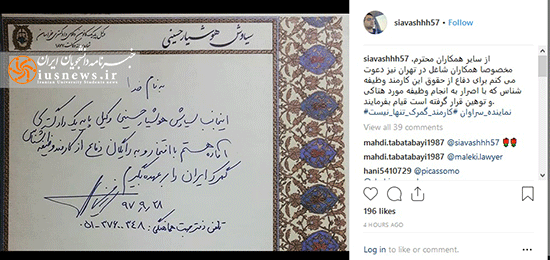 سیاوش هوشیار حسینی
خبرنامه دانشجویان ایران
iusnews.ir
Iranian University Students NEWS
به نام خدا
اینجانب سیاوش هوشیار حسینی وکیل پایه یک دادگستری
آماده هستم با افتخار و به رایگان دفاع از کارمند وظیفه شناس
گمرک ایران را برعهده بگیرم
۹۷،۹،۲۸
تلفن دفتر جهت هماهنگی: ۳۷۶۰۰۳۴۸-۰۵۱
siavashhh57 • Follow
siavashhh57 از سایر همکاران محترم،
مخصوصا همکاران شاغل در تهران نیز دعوت
می کنم برای دفاع از حقوق این کارمند وظیفه
شناس که با اصرار به انجام وظیفه مورد هتاکی
و توهین قرار گرفته است قیام بفرمایند.
#نماینده_سراوان #کارمند_گمرک_تنها_نیست
View all 39 comments
mahdi.tabatabayi1987 @siavashhh57 🌹🌹
mahdi.tabatabayi1987 @maleki.lawyer
hani5410729 @picassomo
196 likes
4 HOURS AGO
Log in to like or comment.